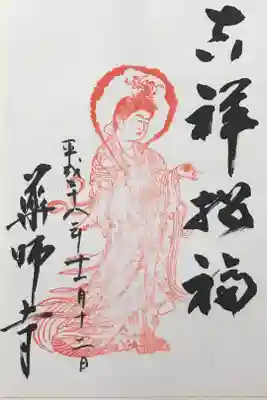 吉祥招福
平成二十八年十一月十二日
薬師寺